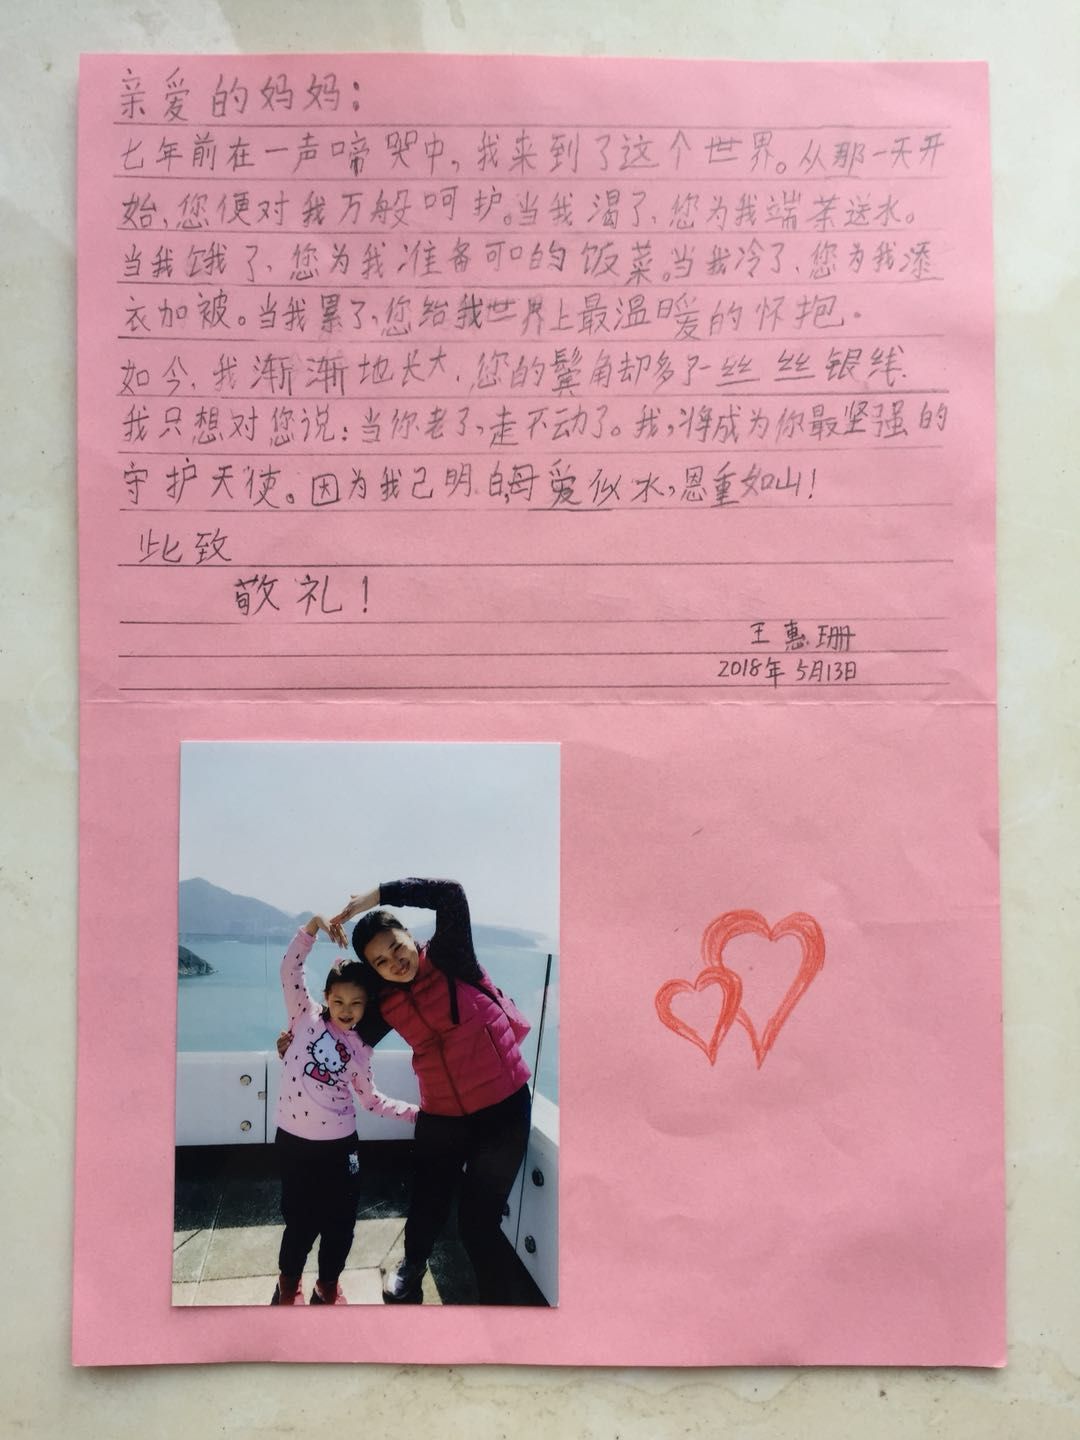 亲爱的妈妈：
七年前在一声啼哭中，我来到了这个世界。从那一天开
始，您便对我万般呵护。当我渴了、您为我端茶送水。
当我饿了、您为我准备可口的饭菜。当我冷了、您为我添
衣加被。当我累了，您给我世界上最温暖的怀抱。
如今、我渐渐地长大、您的鬓角却多了一丝丝银线.
我只想对您说：当你老了，走不动了。我，将成为你最坚强的
守护天使。因为我已明白，母爱似水，恩重如山！
此致
敬礼！
王惠珊
2018年5月13日